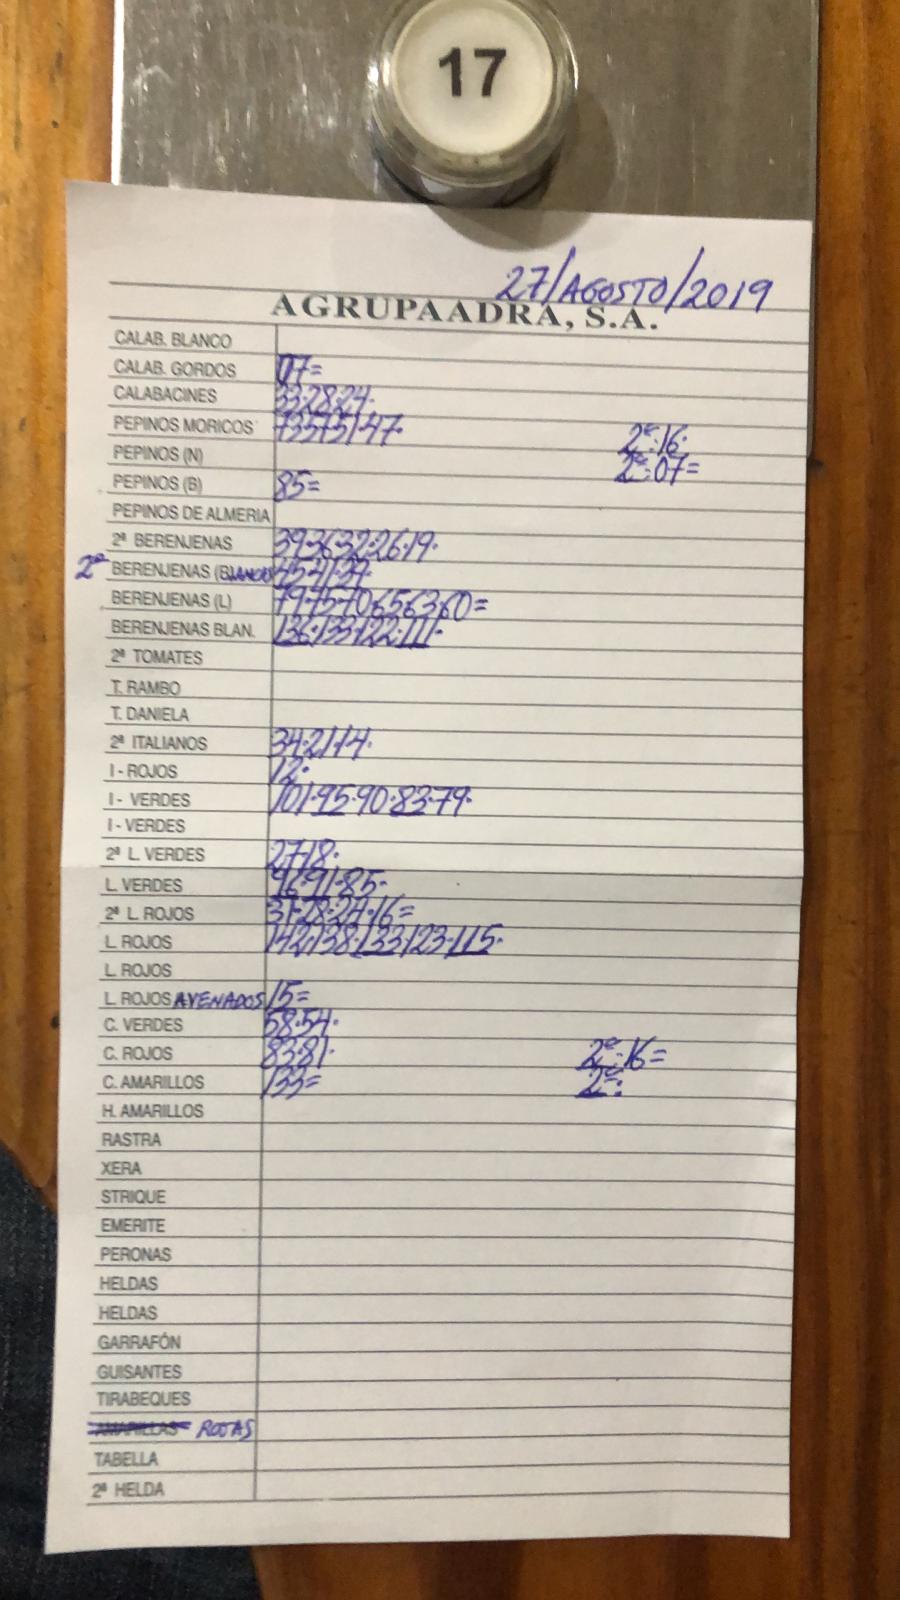 17
27/AGOSTO/2019
AGRUPAADRA, S.A.
CALAB. BLANCO
CALAB. GORDOS 07=
CALABACINES 33·28·24·
PEPINOS MORICOS 2ª:16·
PEPINOS (N) 2ª:07=
PEPINOS (B) 85=
PEPINOS DE ALMERIA
2ª BERENJENAS 39·36·32·26·19·
2ª BERENJENAS (BLANCAS
BERENJENAS (L) 79·75·70·65·63·60=
BERENJENAS BLAN. 136·133·122·111·
2ª TOMATES
T. RAMBO
T. DANIELA
2ª ITALIANOS 34·21·14·
I - ROJOS 12·
I - VERDES 101·95·90·83·79·
I - VERDES
2ª L. VERDES 27·18·
L. VERDES 96·91·85·
2ª L. ROJOS 31·28·24·16=
L. ROJOS 142·138·133·123·115·
L. ROJOS
L. ROJOS AVENADOS 15=
C. VERDES 58·54·
C. ROJOS 83·81· 2ª:16=
C. AMARILLOS 133= 2ª:
H. AMARILLOS
RASTRA
XERA
STRIQUE
EMERITE
PERONAS
HELDAS
HELDAS
GARRAFÓN
GUISANTES
TIRABEQUES
AMARILLAS ROJAS
TABELLA
2ª HELDA